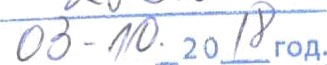 03-10. 2018 год.